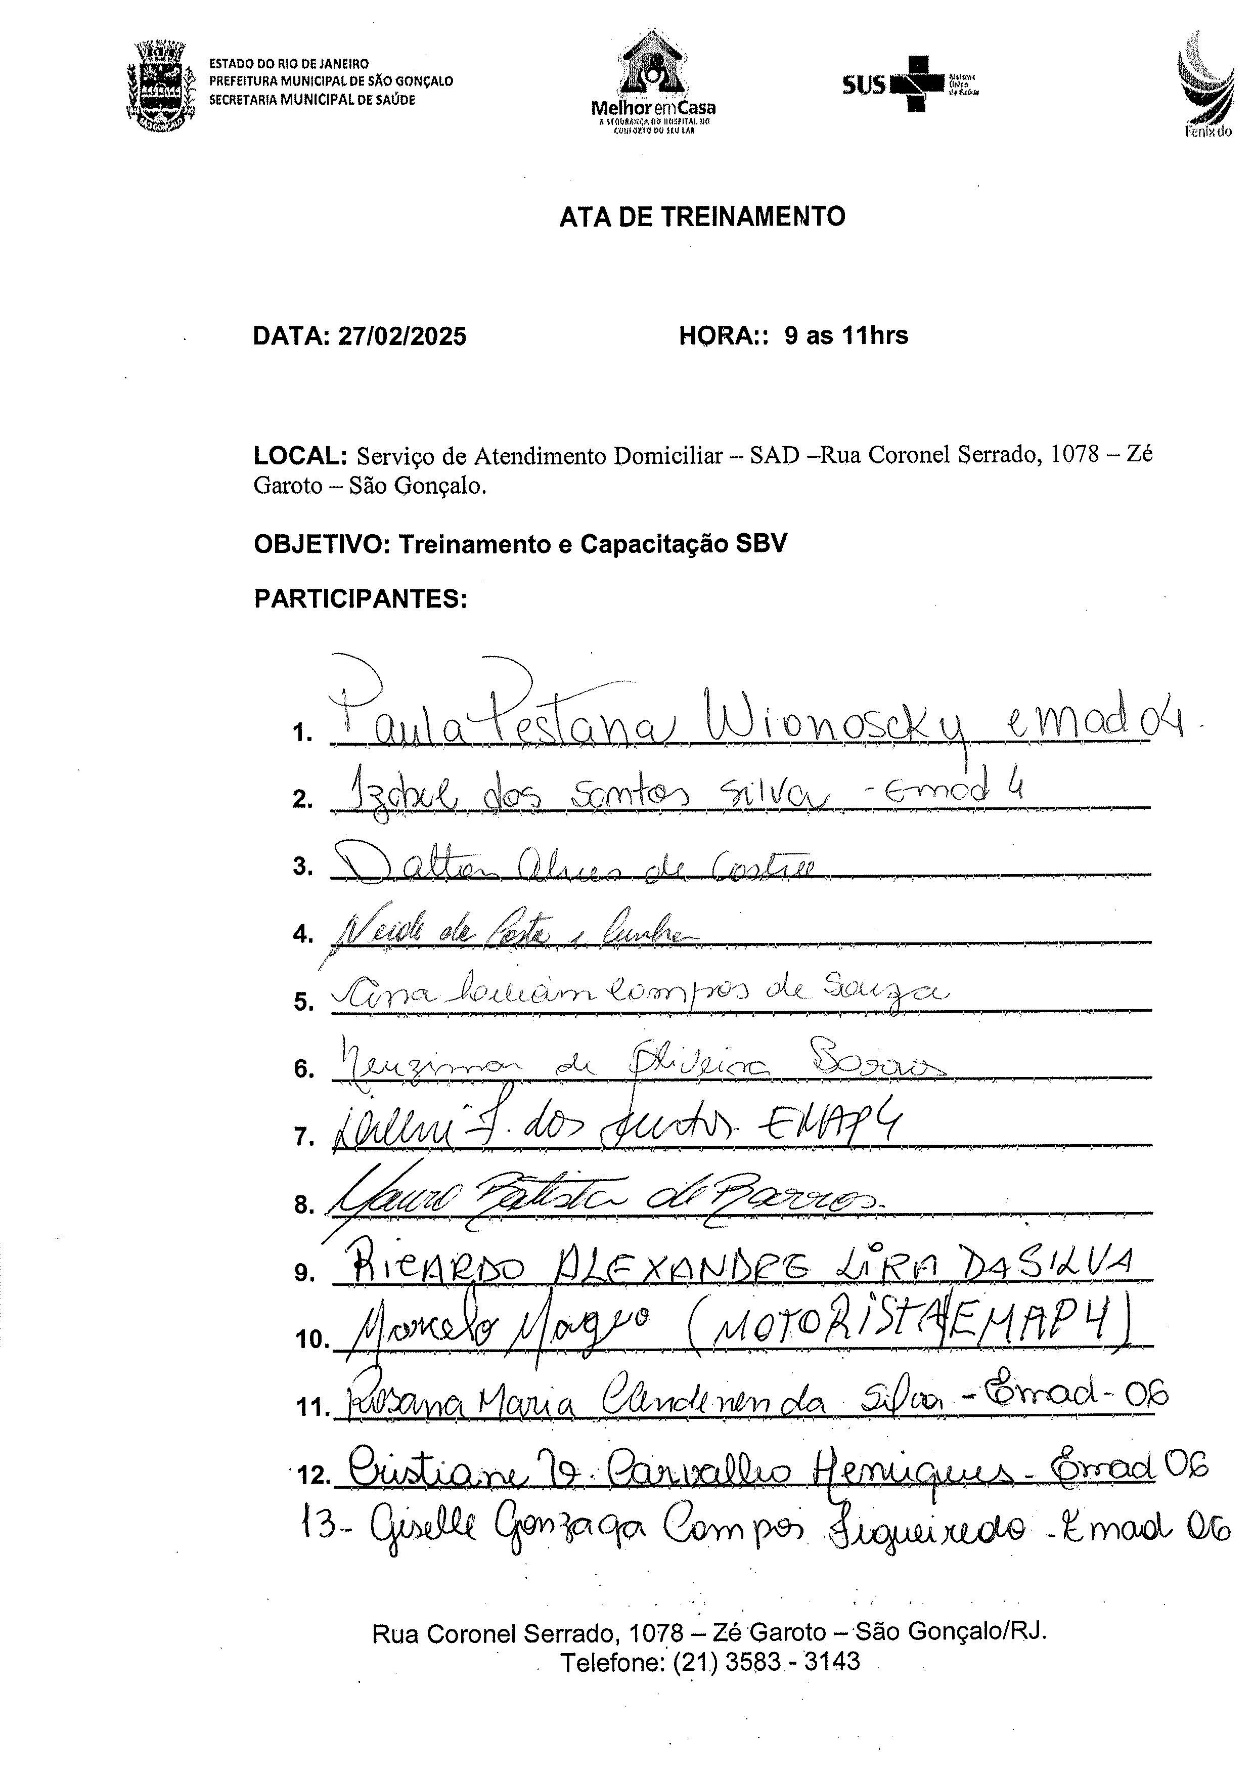 ESTADO DO RIO DE JANEIRO
PREFEITURA MUNICIPAL DE SÃO GONÇALO
SECRETARIA MUNICIPAL DE SAÚDE
Melhor em Casa
A SEGURANÇA DO HOSPITAL NO
CONFORTO DO SEU LAR
SUS
Sistema
Único
de Saúde
Fenix do
ATA DE TREINAMENTO
DATA: 27/02/2025 HORA:: 9 as 11hrs
LOCAL: Serviço de Atendimento Domiciliar – SAD –Rua Coronel Serrado, 1078 – Zé
Garoto – São Gonçalo.
OBJETIVO: Treinamento e Capacitação SBV
PARTICIPANTES:
1. Paula Pestana Wionoscky emad 04.
2. Izabel dos Santos Silva - Emad 4
3. Dalton Alves de
4. Neide da Costa e Cunha
5. Ana Campos de Souza
6. Neuzimar de Oliveira
7. dos Santos. EMAP4
8. Mauro Batista de Barros.
9. RICARDO ALEXANDRE LIRA DA SILVA
10. Marcelo (MOTORISTA/EMAP4)
11. Rosana Maria Clendenen da Silva - Emad - 06
12. Cristiane Carvalho Henriques - Emad 06
13- Giselle Gonzaga Campos Figueiredo - Emad 06
Rua Coronel Serrado, 1078 – Zé Garoto – São Gonçalo/RJ.
Telefone: (21) 3583 - 3143